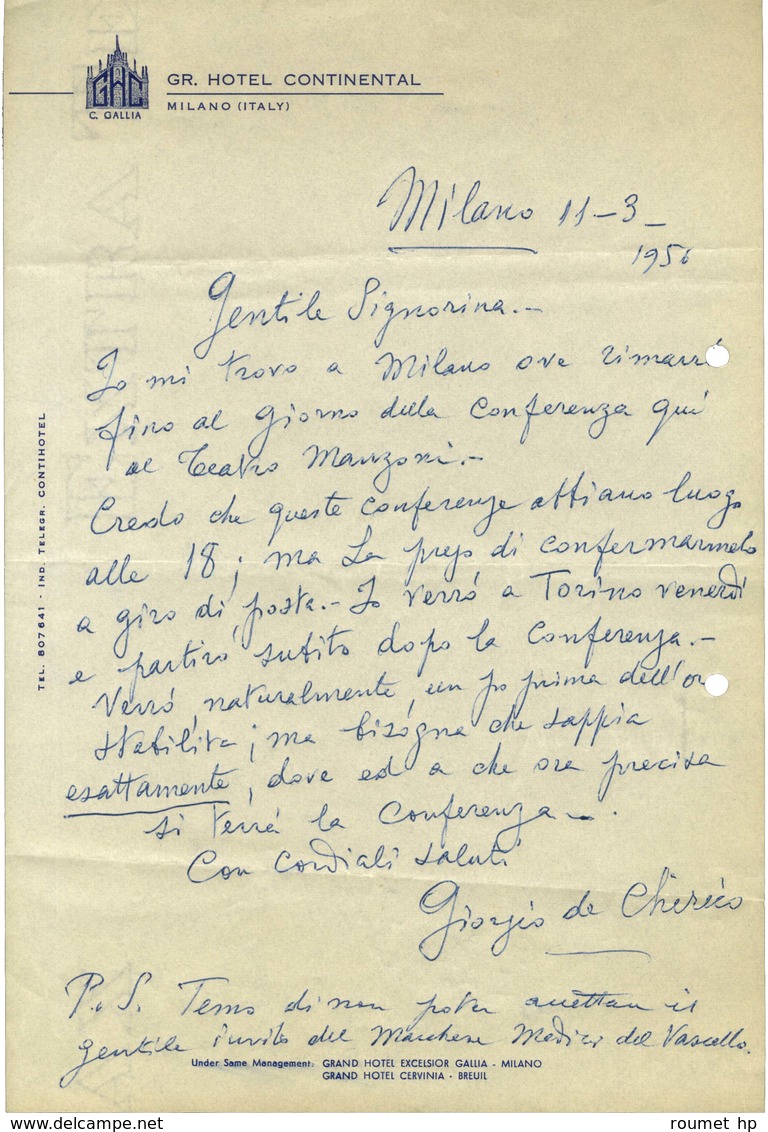 GHC
C. GALLIA
GR. HOTEL CONTINENTAL
MILANO (ITALY)
Milano 11-3-
1956
Gentile Signorina.-
Io mi trovo a Milano ove rimarrò
fino al giorno della conferenza qui
al Teatro Manzoni.-
Credo che queste conferenze abbiano luogo
alle 18; ma La prego di confermarmelo
a giro di posta.- Io verrò a Torino venerdì
e partirò subito dopo la conferenza.-
Verrò, naturalmente, un po prima dell'ora
stabilita; ma bisogna che sappia
esattamente, dove ed a che ora precisa
si terrà la conferenza-.
Con cordiali saluti
Giorgio de Chirico
P.S. Temo di non poter accettare il
gentile invito del Marchese Medici del Vascello.
TEL. 807641 · IND. TELEGR. CONTIHOTEL
Under Same Management: GRAND HOTEL EXCELSIOR GALLIA - MILANO
GRAND HOTEL CERVINIA - BREUIL
roumet hp